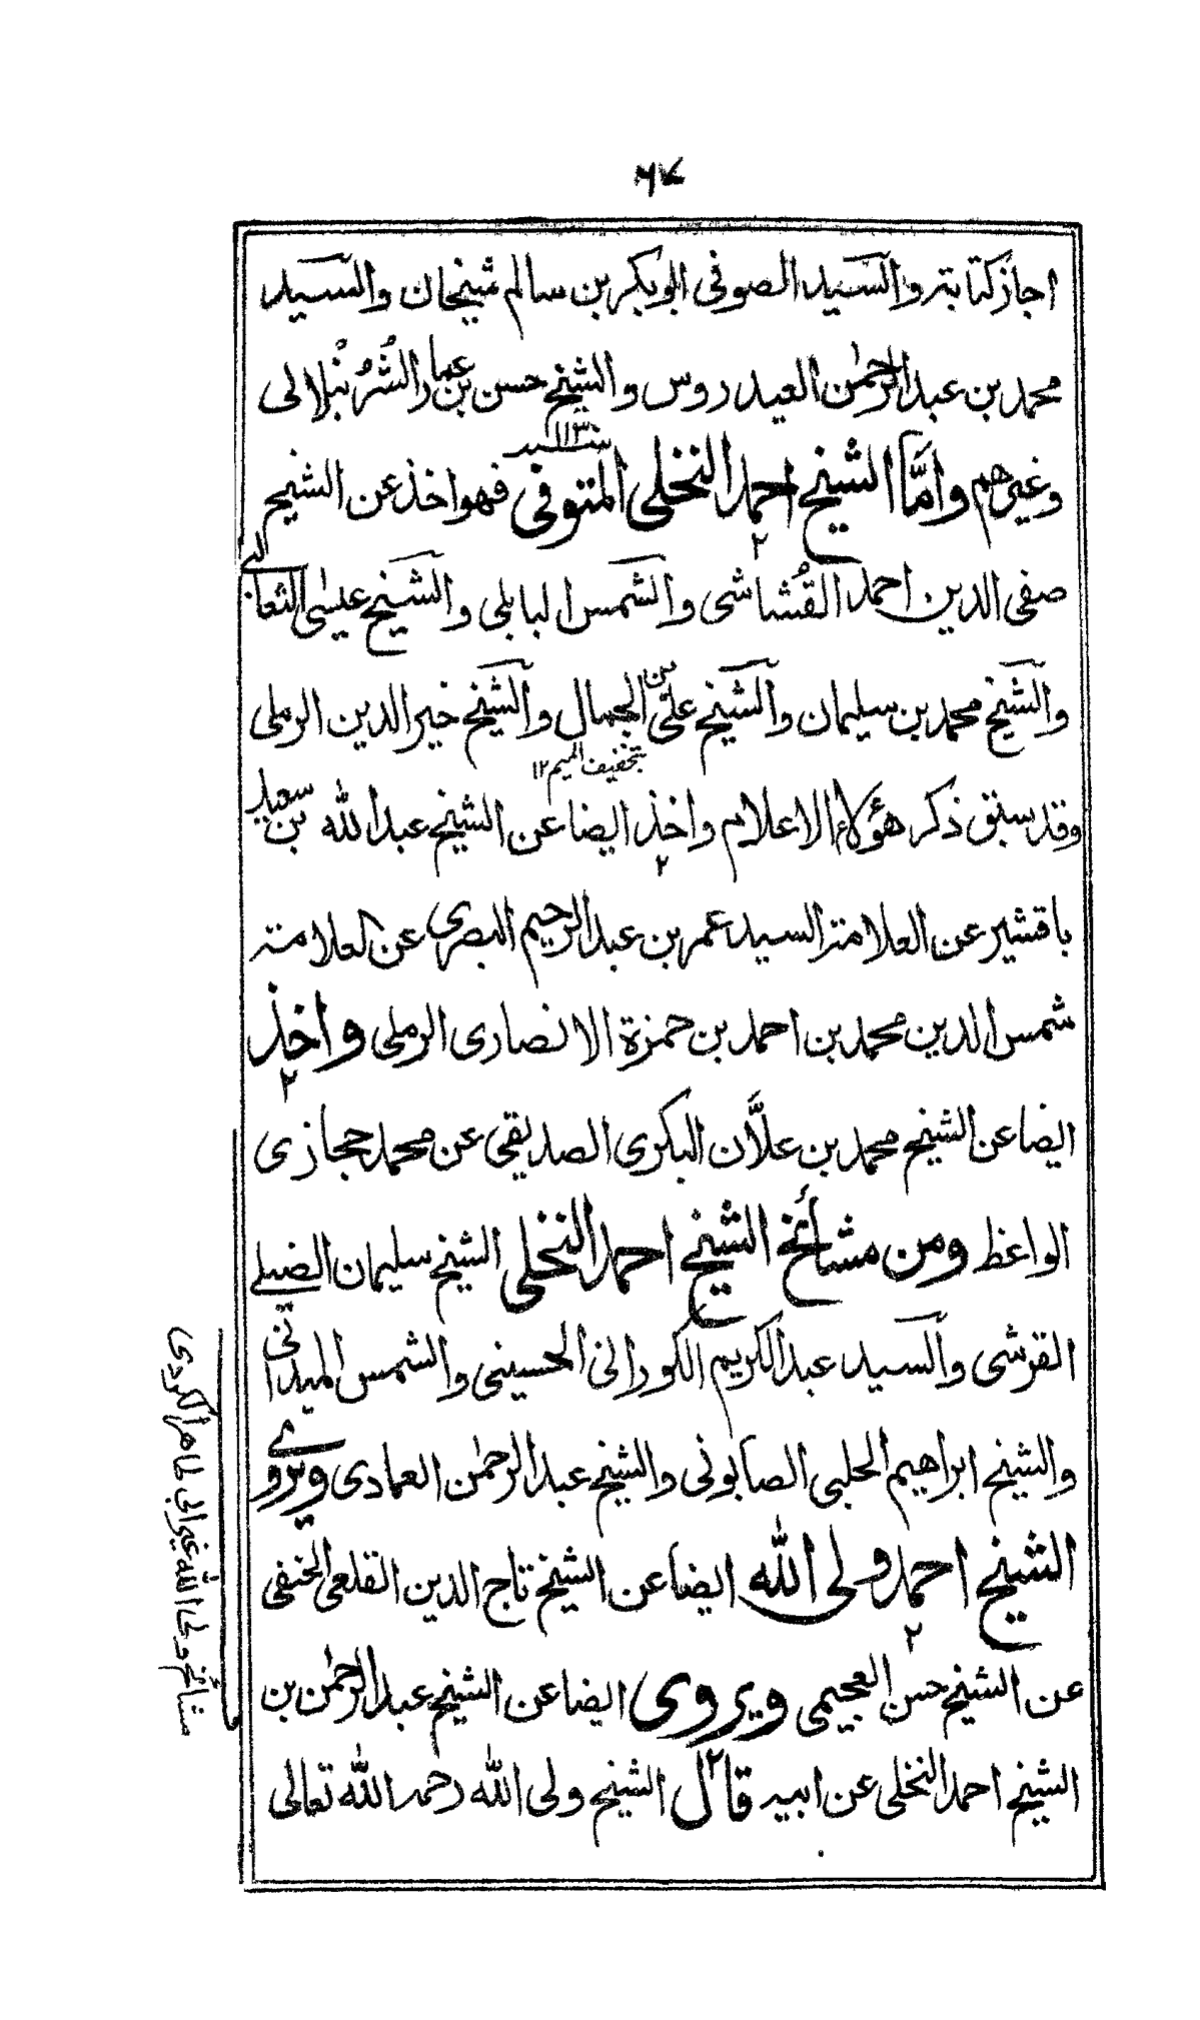 ٦٧
اجاز كتابة والسيد الصوفى ابوبكر بن سالم شيخان والسيد
محمد بن عبد الرحمٰن العيدروس والشيخ حسن بن عمار الشُّرُنْبُلالى
وغيرهم وامَّا الشيخ احمد النخلى المتوفى سنة ١١٣٠ فهو اخذ عن الشيخ
صفى الدين احمد القُشاشى والشمس البابلى والشيخ عيسٰى الثعالبى
والشيخ محمد بن سليمان والشيخ علىّ بن الجمال والشيخ خير الدين الرملى
بتخفيف الميم ١٢
وقد سبق ذكر هؤلاء الاعلام واخذ ايضا عن الشيخ عبد الله بن سعيد
باقشير عن العلامة السيد عمر بن عبد الرحيم البصرى عن لعلامة
شمس الدين محمد بن احمد بن حمزة الانصارى الرملى واخذ
ايضا عن الشيخ محمد بن علَّان البكرى الصديقى عن محمد حجازى
الواعظ ومن مشائخ الشيخ احمد النخلى الشيخ سليمان الضيلے
القرشى والسيد عبد الكريم الكورانى الحسينى والشمس الميدانى
والشيخ ابراهيم الحلبى الصابونى والشيخ عبد الرحمٰن العمادى ويروے
الشيخ احمد ولى الله ايضا عن الشيخ تاج الدين القلعى الحنفى
عن الشيخ حسن العجيمى ويروى ايضا عن الشيخ عبد الرحمٰن بن
الشيخ احمد النخلى عن ابيه قال الشيخ ولى الله رحمه الله تعالى
مشائخ ولى الله غير ابى طاهر الكردى